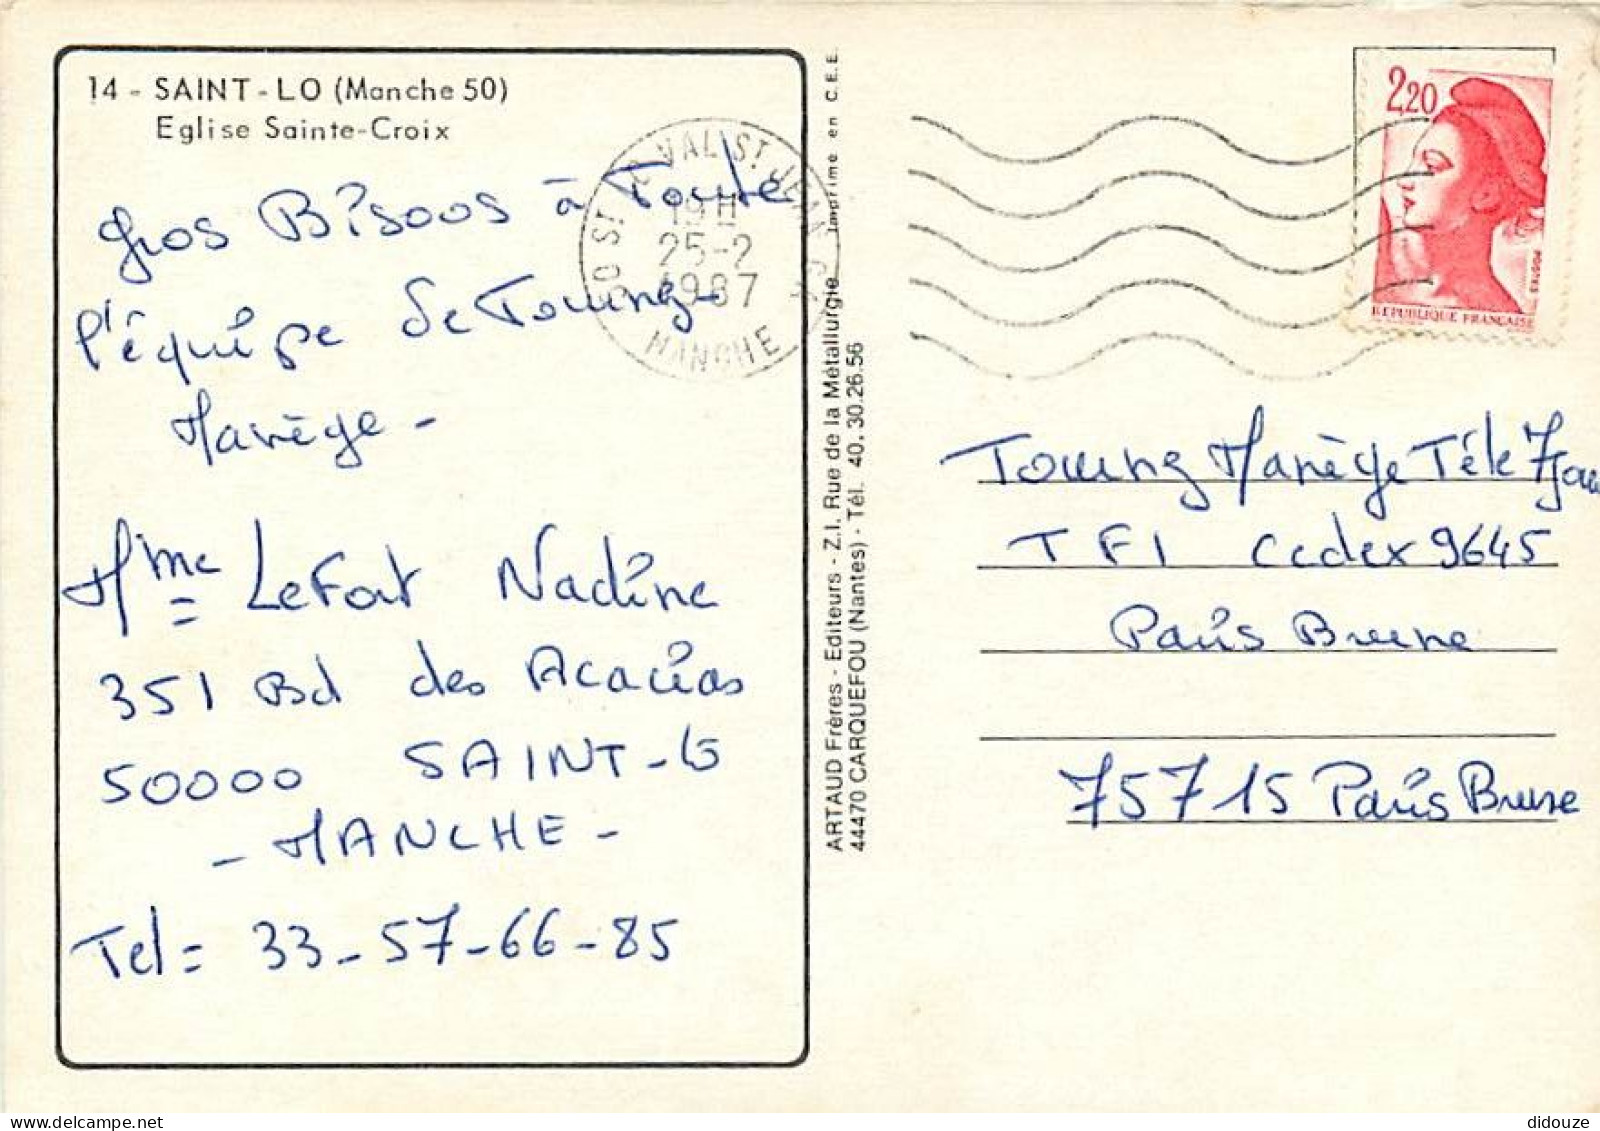 14 - SAINT-LO (Manche 50)
Eglise Sainte-Croix
gros Bisoos à Toute
l'équipe de Tournez
Manège -
Mme LeFort Nadine
351 Bd des Acacias
50000 SAINT-LO
- MANCHE -
Tel = 33-57-66-85
50 ST LO VAL ST JEAN
19H
25-2
1987
MANCHE
ARTAUD Frères - Editeurs - Z.I. Rue de la Métallurgie Imprimé en C.E.E.
44470 CARQUEFOU (Nantes) - Tél. 40.30.26.56
2,20
REPUBLIQUE FRANÇAISE
Tournez Manège Télé 7 Jou
TF1 Cedex 9645
Paris Brune
75715 Paris Brune
didouze